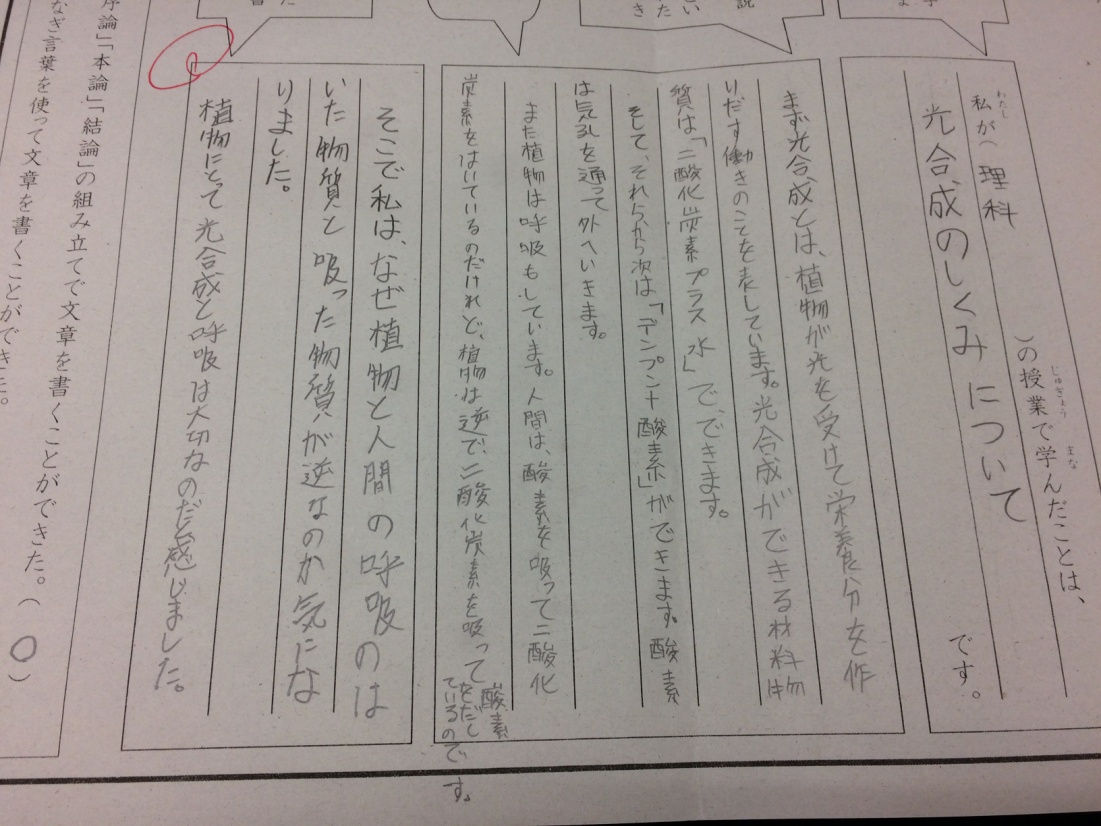 私が(理科)の授業で学んだことは、
わたし
じゅぎょう
まな
光合成のしくみについて
です。
まず光合成とは、植物が光を受けて栄養分を作
りだす働きのことを表しています。光合成ができる材料物
質は「二酸化炭素プラス水」で、できます。
そして、それらから次は「デンプン+酸素」ができます。酸素
は気孔を通って外へいきます。
また植物は呼吸もしています。人間は、酸素を吸って二酸化
炭素をはいているのだけれど、植物は逆で、二酸化炭素を吸って酸素
をだし
ているので
す。
そこで私は、なぜ植物と人間の呼吸のは
いた物質と吸った物質が逆なのか気にな
りました。
植物にとって光合成と呼吸は大切なのだと感じました。
序論」「本論」「結論」の組み立てで文章を書くことができた。(○)
なぎ言葉を使って文章を書くことができた。